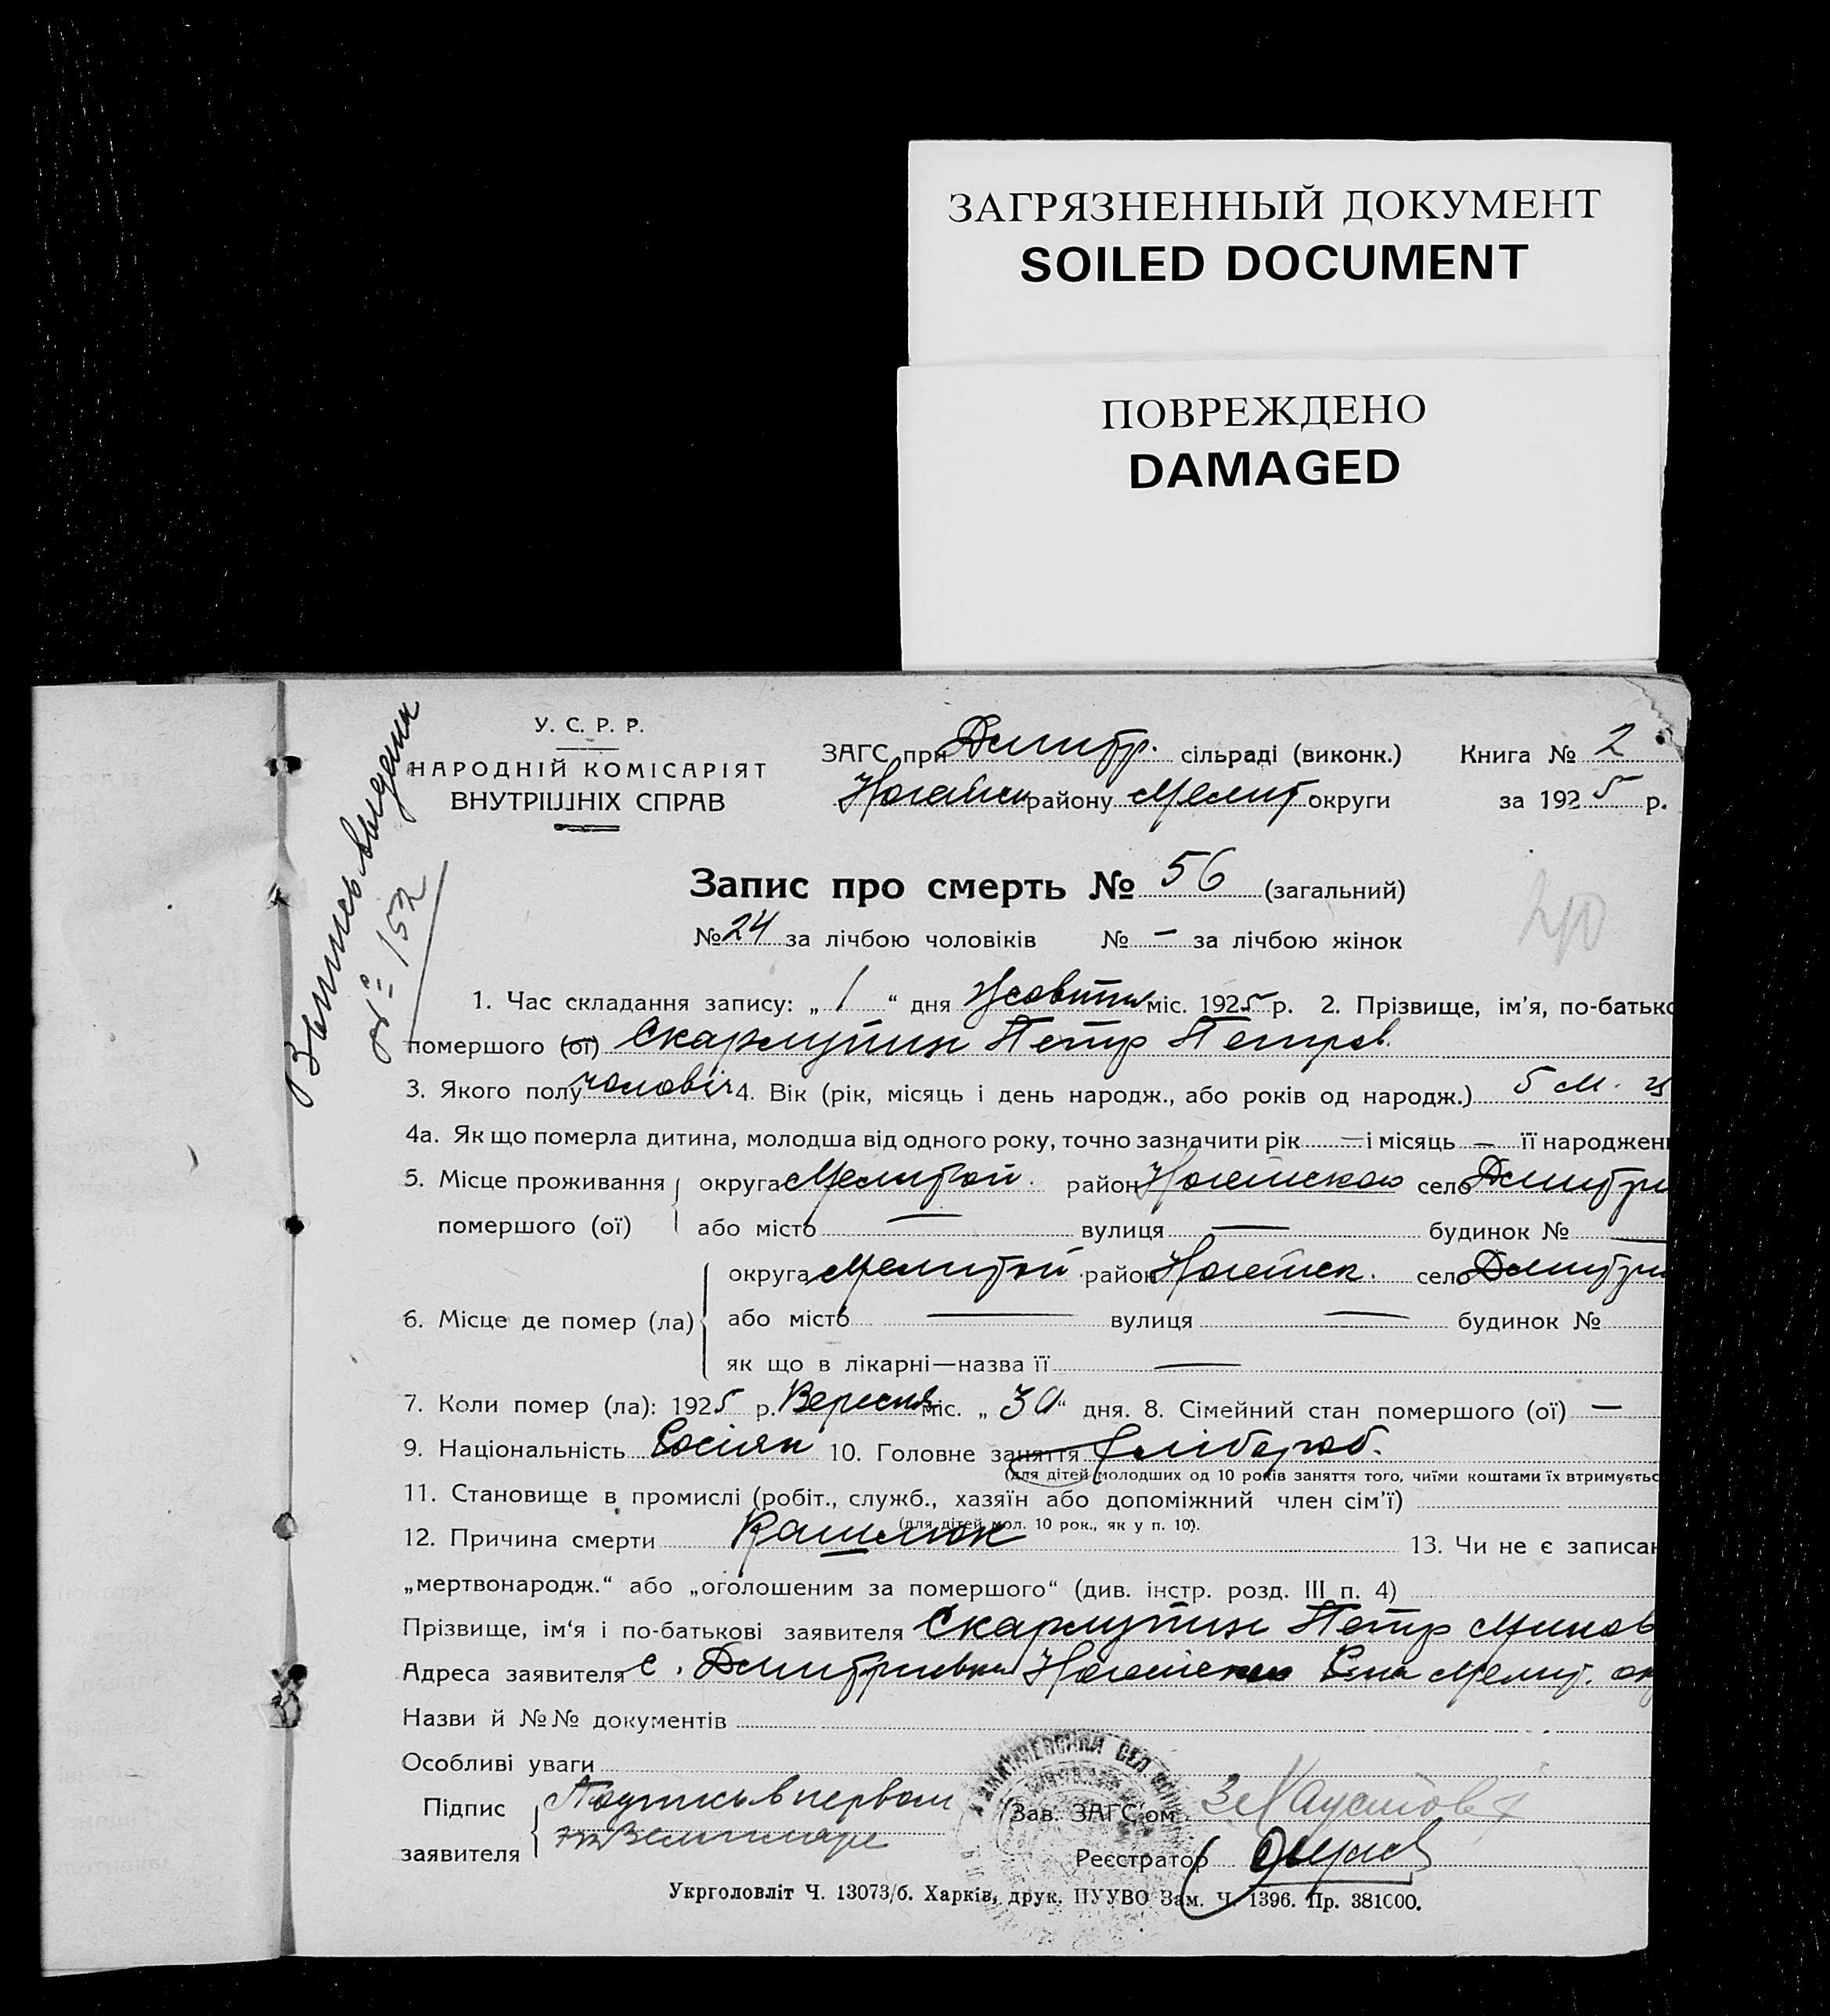 ЗАГРЯЗНЕННЫЙ ДОКУМЕНТ
SOILED DOCUMENT
ПОВРЕЖДЕНО
DAMAGED
У. С. Р. Р.
НАРОДНІЙ КОМІСАРІЯТ
ВНУТРІШНІХ СПРАВ
ЗАГС при Дмитр. сільраді (виконк.) Книга № 2
Ногайск району Мелит округи за 1925 р.
Выпись выдана
№ 152
Запис про смерть № 56 (загальний)
40
№ 24 за лічбою чоловіків № — за лічбою жінок
1. Час складання запису: „ 1 “ дня Жовтня міс. 1925 р. 2. Прізвище, ім'я, по-батько
помершого (ої) Скармутин Петр Петров.
3. Якого полу чоловіч 4. Вік (рік, місяць і день народж., або років од народж.) 5 м.
4а. Як що померла дитина, молодша від одного року, точно зазначити рік — і місяць — її народженн
5. Місце проживання округа Мелитоп. район Ногайского село Дмитри
помершого (ої) або місто — вулиця — будинок № —
округа Мелитоп район Ногайск. село Дмитри
6. Місце де помер (ла) або місто — вулиця — будинок №
як що в лікарні—назва її —
7. Коли помер (ла): 1925 р. Вересня міс. „ 30 “ дня. 8. Сімейний стан помершого (ої) —
9. Національність Росіян 10. Головне заняття Хлібороб.
(для дітей молодших од 10 років заняття того, чиїми коштами їх втримуєтьс
11. Становище в промислі (робіт., служб., хазяїн або допоміжний член сім'ї)
(для дітей мол. 10 рок., як у п. 10).
12. Причина смерти Кашлюк 13. Чи не є записан
„мертвонародж.“ або „оголошеним за помершого“ (див. інстр. розд. III п. 4)
Прізвище, ім'я і по-батькові заявителя Скармутин Петр Минов
Адреса заявителя с. Дмитриевки Ногайск Мелит. ок
Назви й №№ документів
Особливі уваги
Підпис Подпись в первом
заявителя экземпляре
Зав. ЗАГС'ом Хаустов
Реєстратор
Укрголовліт Ч. 13073/б. Харків, друк. ПУУВО Зам. Ч. 1396. Пр. 381000.